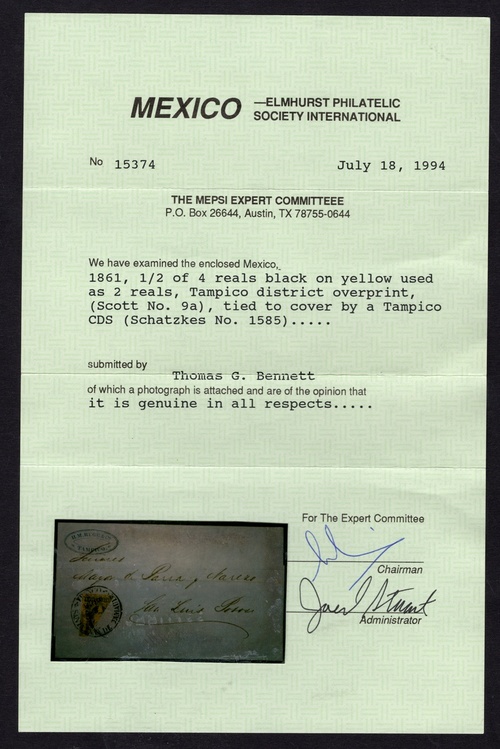 MEXICO —ELMHURST PHILATELIC
SOCIETY INTERNATIONAL
No 15374 July 18, 1994
THE MEPSI EXPERT COMMITTEEE
P.O. Box 26644, Austin, TX 78755-0644
We have examined the enclosed Mexico,
1861, 1/2 of 4 reals black on yellow used
as 2 reals, Tampico district overprint,
(Scott No. 9a), tied to cover by a Tampico
CDS (Schatzkes No. 1585).....
submitted by
Thomas G. Bennett
of which a photograph is attached and are of the opinion that
it is genuine in all respects.....
For The Expert Committee
Chairman
Administrator
TAMPICO
San Luis